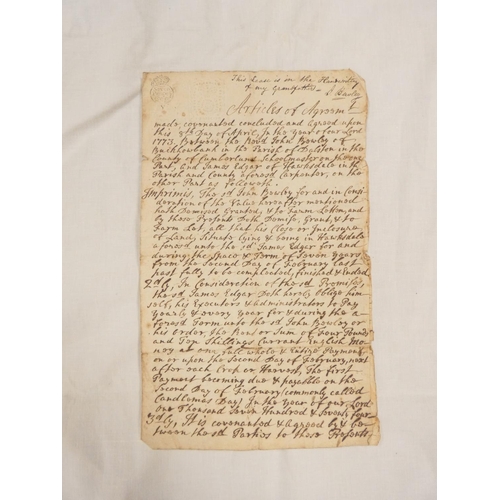 This Lease is in the Handwriting
of my Grandfather
Articles of Agreem.t
made covenanted concluded and agreed upon
this 8th Day of April, In the year of our Lord
1773, Between the Revd John Bowley of
in the Parish of Dalston in the
County of Cumberland Schoolmaster on the one
Part And James Edgar of Hawksdale in the
Parish and County aforesd Carpenter, on the
other Part as followeth.
Imprimis, The sd John Bowley for and in Consi-
deration of the Value hereafter mentioned
hath Demised Granted, & to Farm Letten, and
by these Presents Doth Demise, Grant, & to
Farm Let, all that his Close or Inclosure
of Land, Situate lying & being in Hawksdale
aforesd unto the sd James Edgar for and
during the Space & Term of Seven Years
from the Second Day of February last
past fully to be compleated, finished & Ended
2dly, In Consideration of the sd Premises
the sd James Edgar Doth hereby oblige him-
self, his Executors & Administrators to Pay
yearly & every year for & during the a-
foresd Term unto the sd John Bowley or
his Order, the Rent or Sum of Four Pounds
and Ten Shillings Currant English Mo-
ney at one full whole & Entire Payment
on or upon the Second Day of February, next
after each Crop or Harvest, The first
Payment becoming due & payable on the
Second Day of February (commonly called
Candlemas Day) In the year of our Lord
One Thousand Seven Hundred & Seventy four
3dly, It is covenanted & agreed by & be-
tween the sd Parties to these Presents